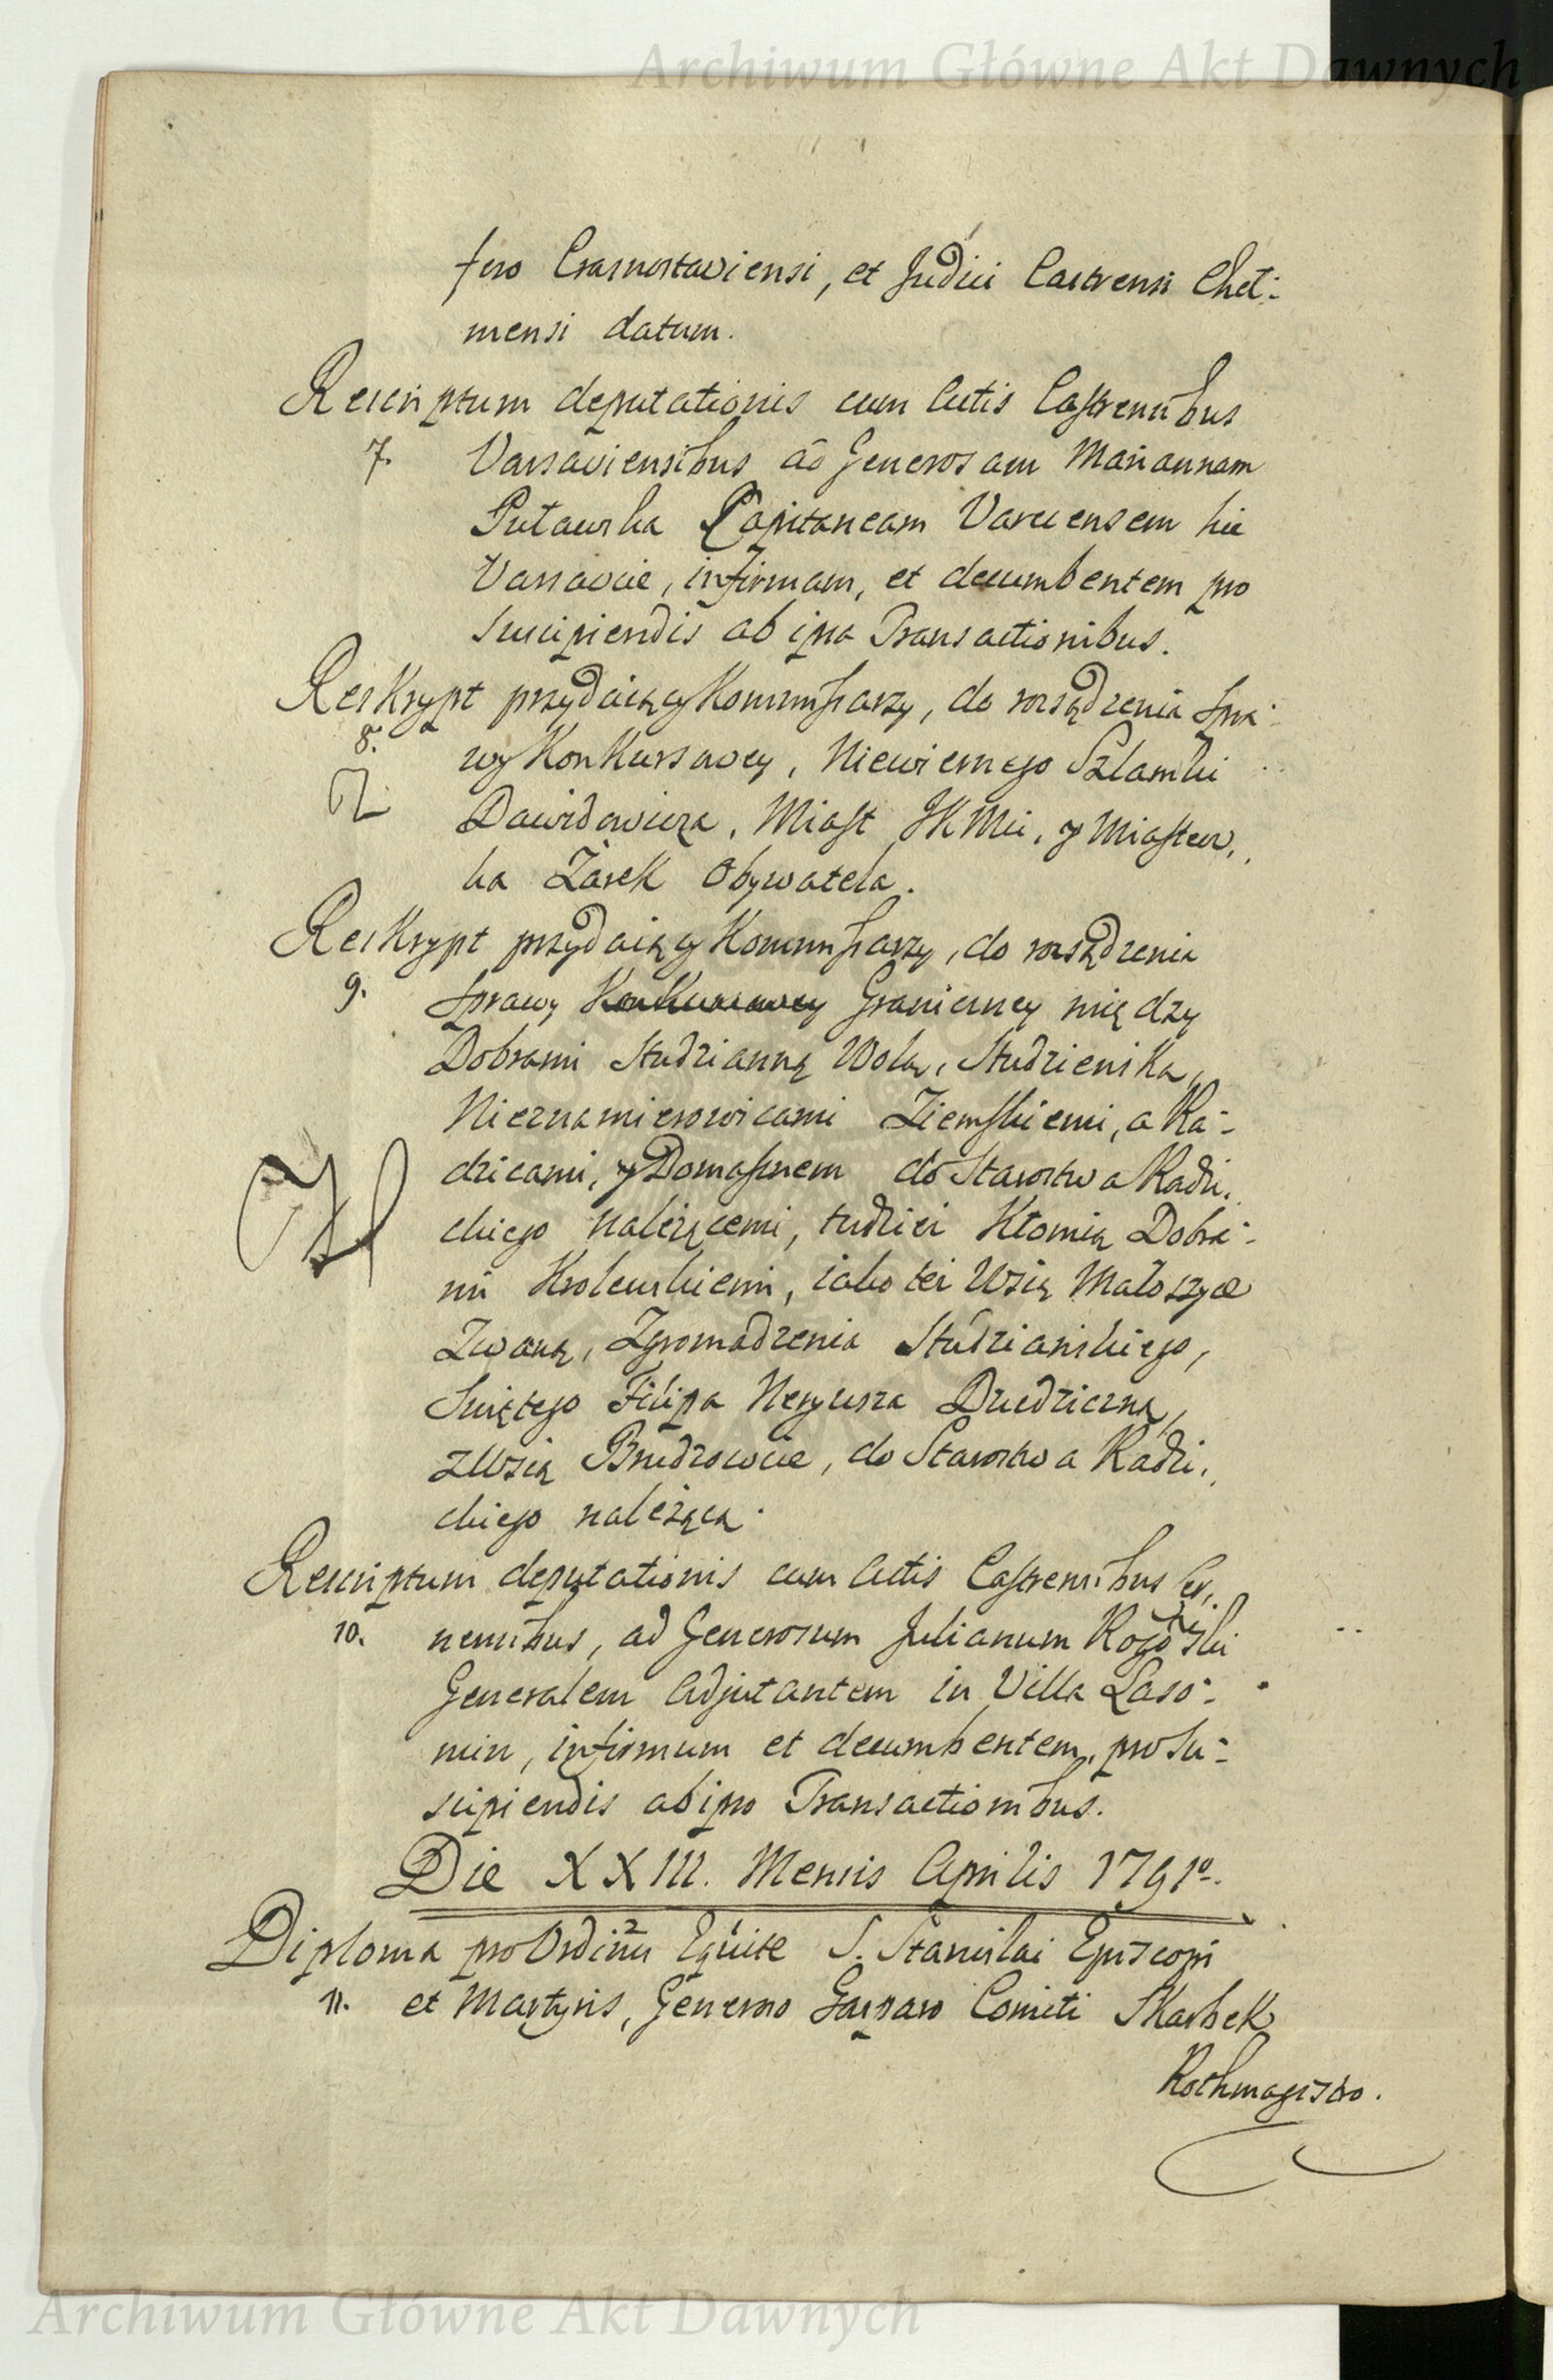 Archiwum Główne Akt Dawnych
fero Crasnostaviensi, et Judici Castrensi Cheł-
mensi datum.
Rescriptum deputationis cum Actis Castrensibus
7. Varsaviensibus ad Generosam Mariannam
Puławska Capitaneam Varecensem hic
Varsaviæ, infirmam, et decumbentem pro
suscipiendis ab ipsa Transactionibus.
Reskrypt przydaiący Kommissarzy, do rozsądzenia Spra-
8. wy Konkursowey, Niewiernego Szlamki
Dawidowicza, Miast JKMci, y Miastecz,,
ka Żarek Obywatela.
Reskrypt przydaiący Kommissarzy, do rozsądzenia
9. Sprawy Konkursowey Graniczney między
Dobrami Studzianną Wolą, Studzieńską,
Nieznamierowicami Ziemskiemi, a Ra-
dzicami, y Domasznem do Starostwa Radzi,,
ckiego należącemi, tudzież Kłonią Dobra-
mi Krolewskiemi, iako też Wsią Małoszyce
Zwaną, Zgromadzenia Studziańskiego,
Swiętego Filipa Neryusza Dziedziczną,
z Wsią Brudzowice, do Starostwa Radzi,,
ckiego należącą.
Rescriptum deputationis cum Actis Castrensibus Cer,,
10. nensibus, ad Generosum Julianum Rogoyski
Generalem Adjutantem in Villa Laso-
min, infirmum et decumbentem, pro su-
scipiendis ab ipso Transactionibus.
Die XXIII. Mensis Aprilis 1791º.
Diploma pro Ordinis 2 Equite 1 S. Stanislai Episcopi
11. et Martyris, Generoso Gasparo Comiti Skarbek
Rothmagistro.
Archiwum Główne Akt Dawnych